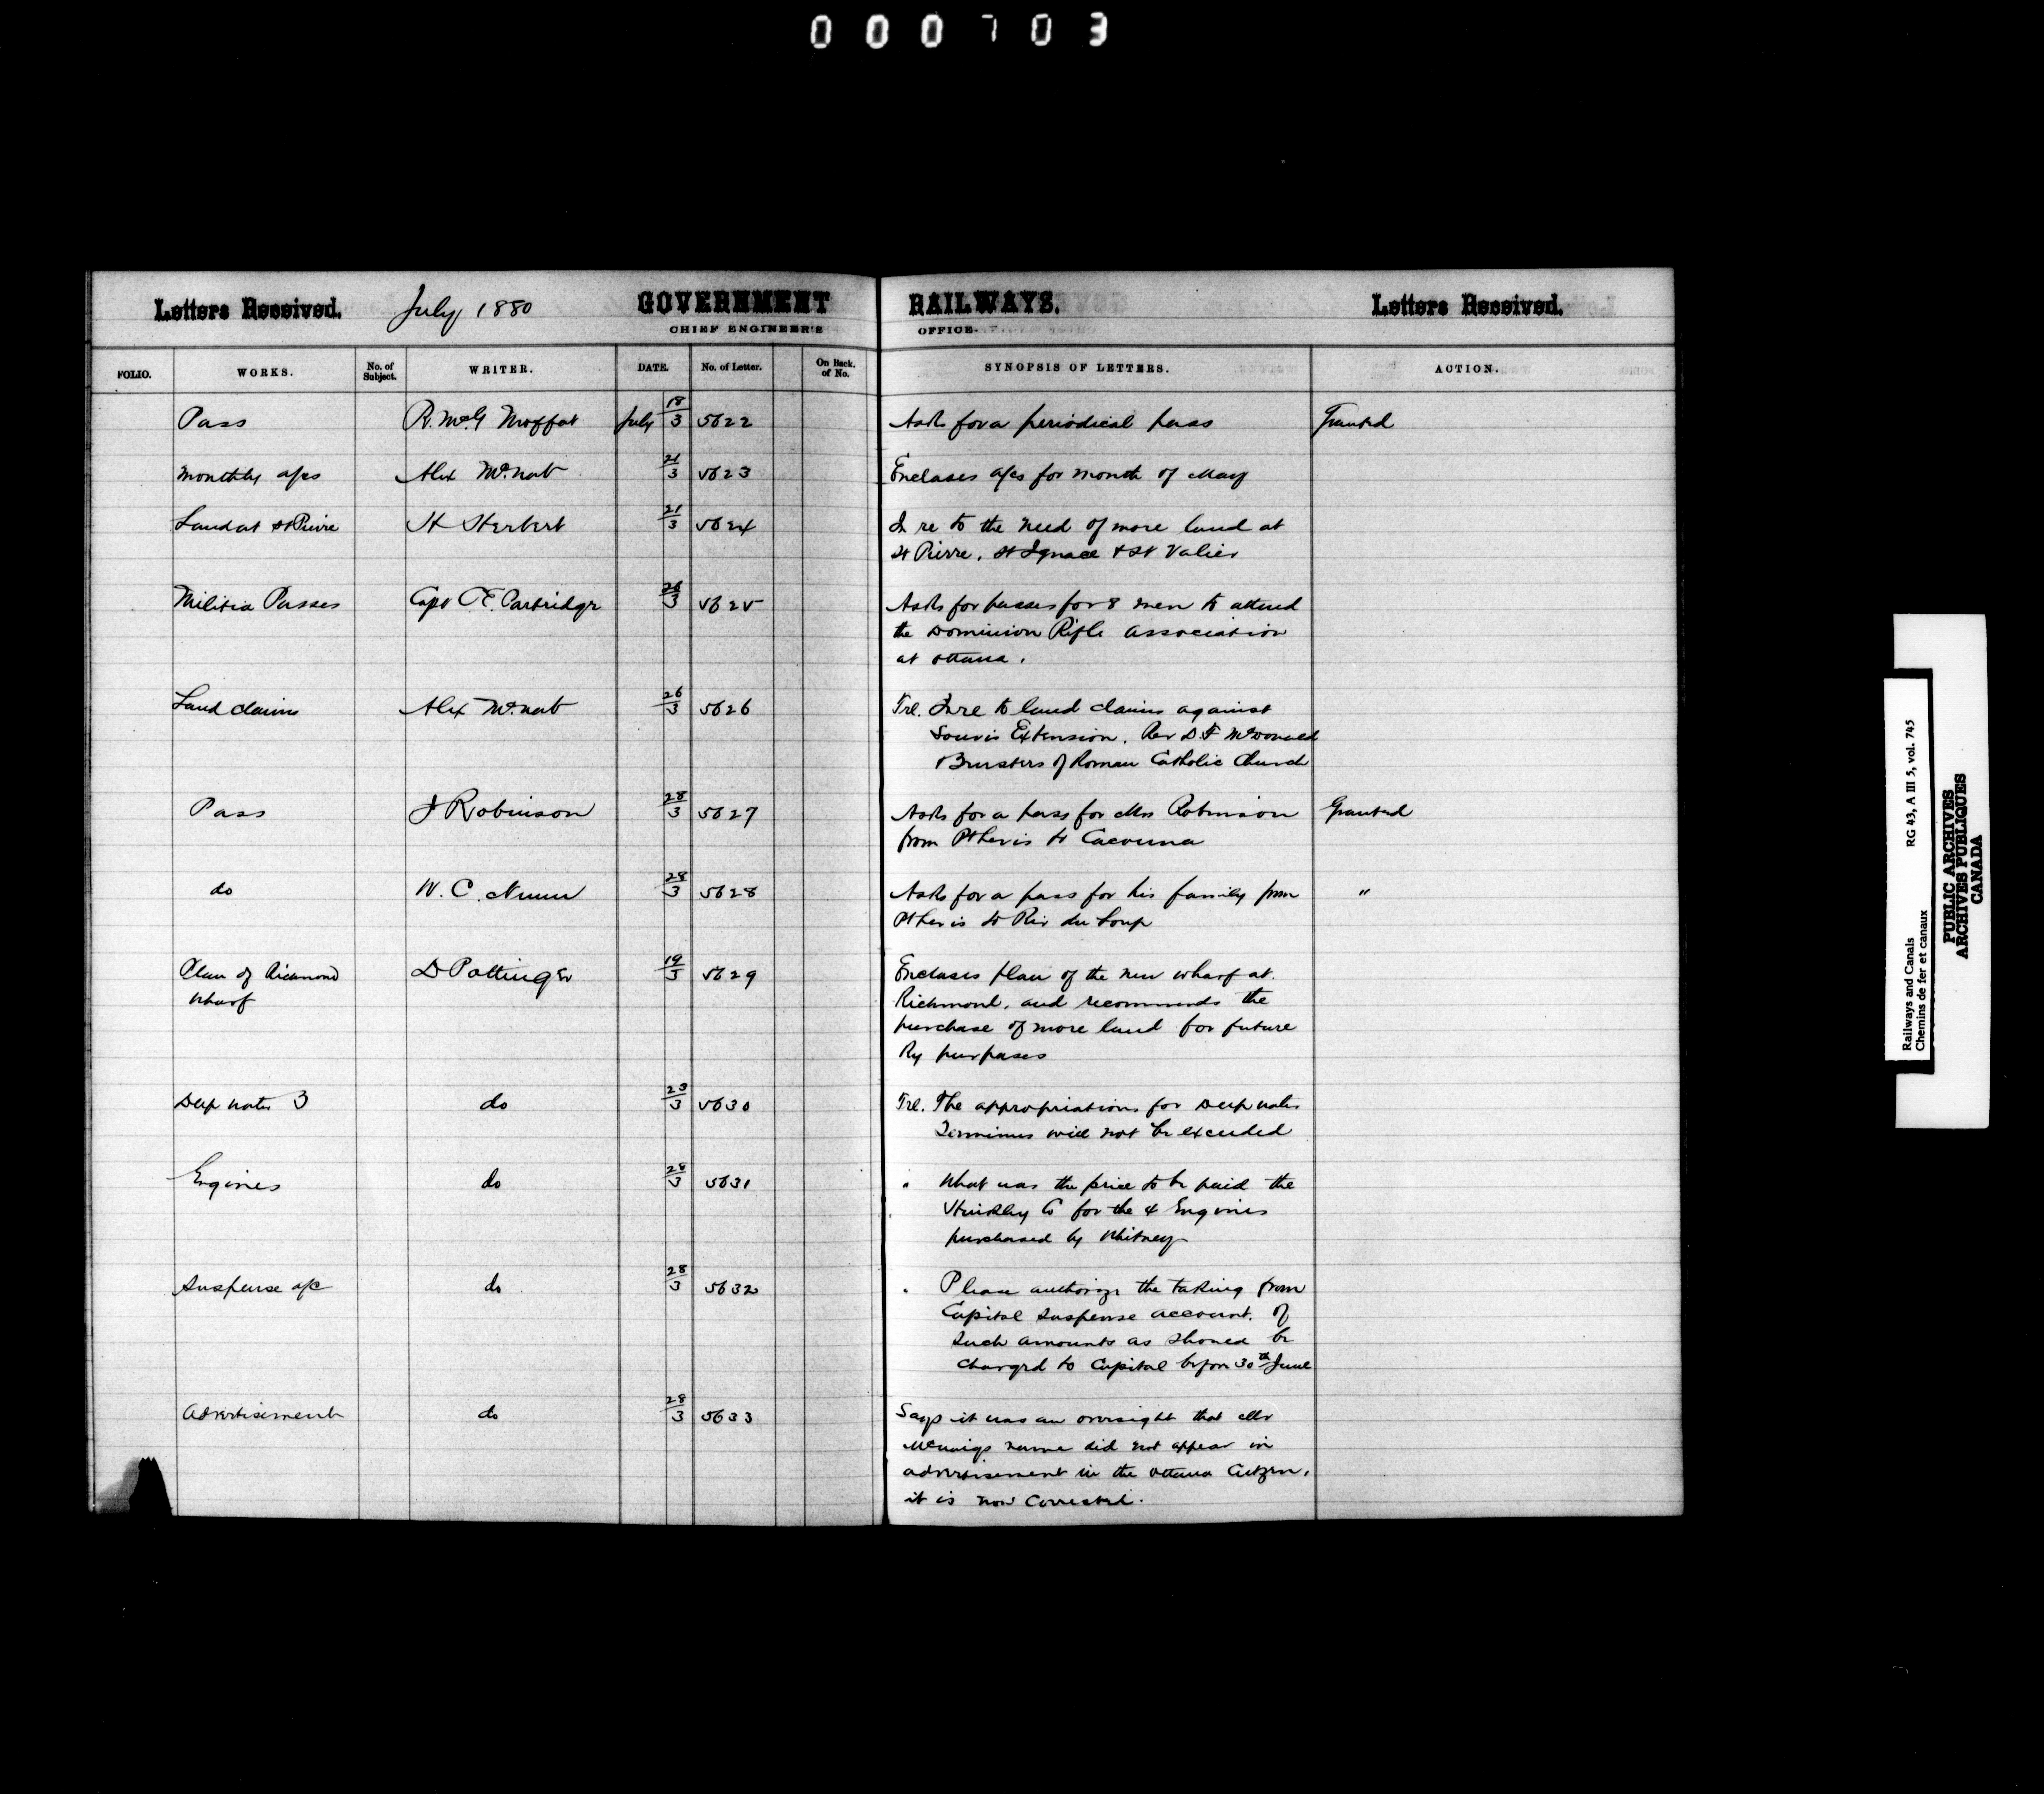 000703
Letters Received. July 1880 GOVERNMENT RAILWAYS. Letters Received.
CHIEF ENGINEER'S OFFICE.
FOLIO. WORKS. No. of Subject. WRITER. DATE. No. of Letter. On Back of No. SYNOPSIS OF LETTERS. ACTION.
Pass R. McG Moffat July 18/3 5622 Asks for a periodical pass Granted
Monthly a/cs Alex McNab 21/3 5623 Encloses a/cs for month of May
Land at St Pierre H Herbert 21/3 5624 In re to the need of more land at
St Pierre, St Ignace & St Valier
Militia Passes Capt E. Partridge 26/3 5625 Asks for passes for 8 men to attend
the Dominion Rifle Association
at Ottawa.
Land claims Alex McNab 26/3 5626 Tel. In re to land claims against
Souris Extension. Rev D F McDonald
& Trusters of Roman Catholic Church
Pass J Robinson 28/3 5627 Asks for a pass for Mrs Robinson Granted
from Pt Levis to Cacouna
do W. C. Nunn 28/3 5628 Asks for a pass for his family from "
Pt Levis to Riv du Loup
Plan of Richmond D Pottinger 19/3 5629 Encloses plan of the new wharf at
Wharf Richmond, and recommends the
purchase of more land for future
Ry purposes
Deep water 3 do 23/3 5630 Tel. The appropriations for Deep water
Terminus will not be exceeded
Engines do 28/3 5631 " What was the price to be paid the
Hinkley Co for the 4 Engines
purchased by Whitney
Suspense a/c do 28/3 5632 " Please authorize the taking from
Capital Suspense account. of
such amounts as should be
charged to Capital before 30th June
Advertisement do 28/3 5633 Says it was an oversight that Mr
name did not appear in
advertisement in the Ottawa Citizen,
it is now corrected.
Railways and Canals RG 43, A III 5, vol. 745
Chemins de fer et canaux
PUBLIC ARCHIVES
ARCHIVES PUBLIQUES
CANADA